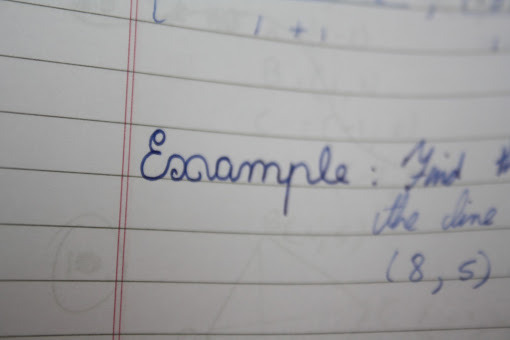 1 + 1
Example : Find
the line
(8, 5)